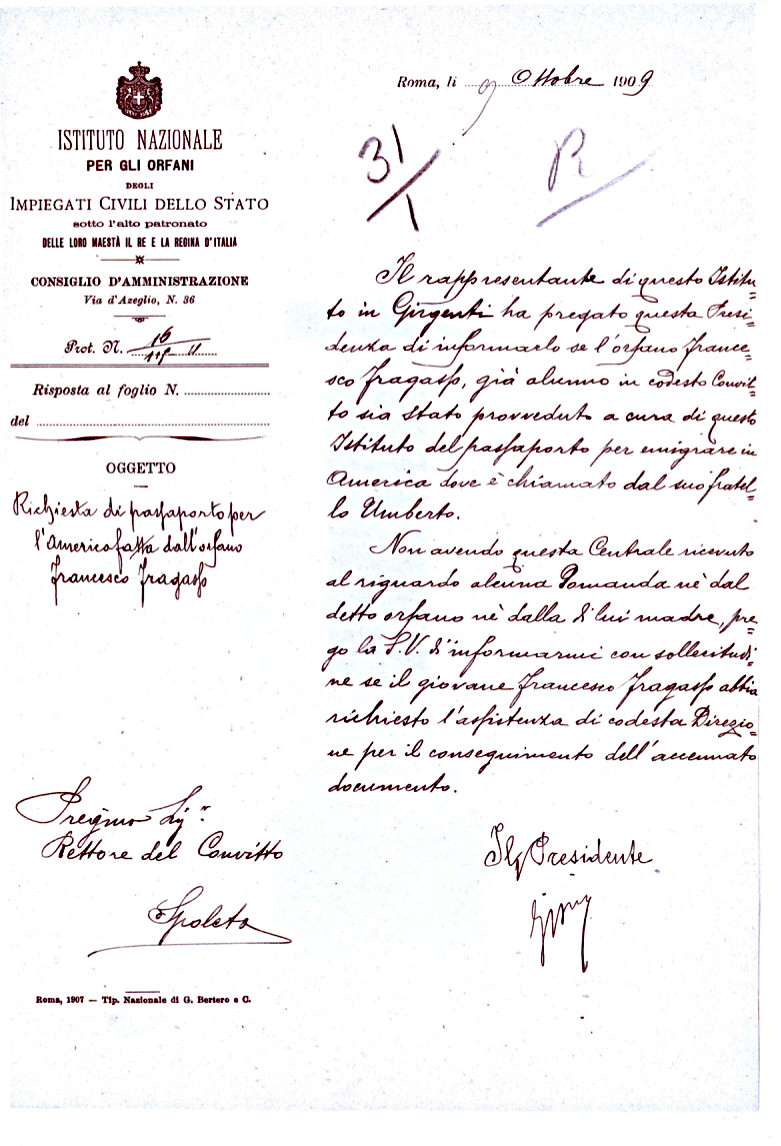 Roma, li 9 Ottobre 1909
31/1
R
ISTITUTO NAZIONALE
PER GLI ORFANI
DEGLI
IMPIEGATI CIVILI DELLO STATO
sotto l'alto patronato
DELLE LORO MAESTÀ IL RE E LA REGINA D'ITALIA
CONSIGLIO D'AMMINISTRAZIONE
Via d'Azeglio, N. 36
Prot. N. 16
Risposta al foglio N.
del
OGGETTO
Richiesta di passaporto per
l'America fatta dall'orfano
Francesco Fragasso
Il rappresentante di questo Istitu=
to in Girgenti ha pregato questa Presi=
denza di informarlo se l'orfano France=
sco Fragasso, già alunno in codesto Convit=
to sia stato provveduto a cura di questo
Istituto del passaporto per emigrare in
America dove è chiamato dal suo fratel=
lo Umberto.
Non avendo questa Centrale ricevuto
al riguardo alcuna Domanda nè dal
detto orfano nè dalla di lui madre, pre=
go la S.V. d'informarmi con sollecitudi=
ne se il giovane Francesco Fragasso abbia
richiesto l'assistenza di codesta Direzio=
ne per il conseguimento dell'accennato
documento.
Il Presidente
Pregmo Sigr.
Rettore del Convitto
Spoleto
Roma, 1907 — Tip. Nazionale di G. Bertero e C.